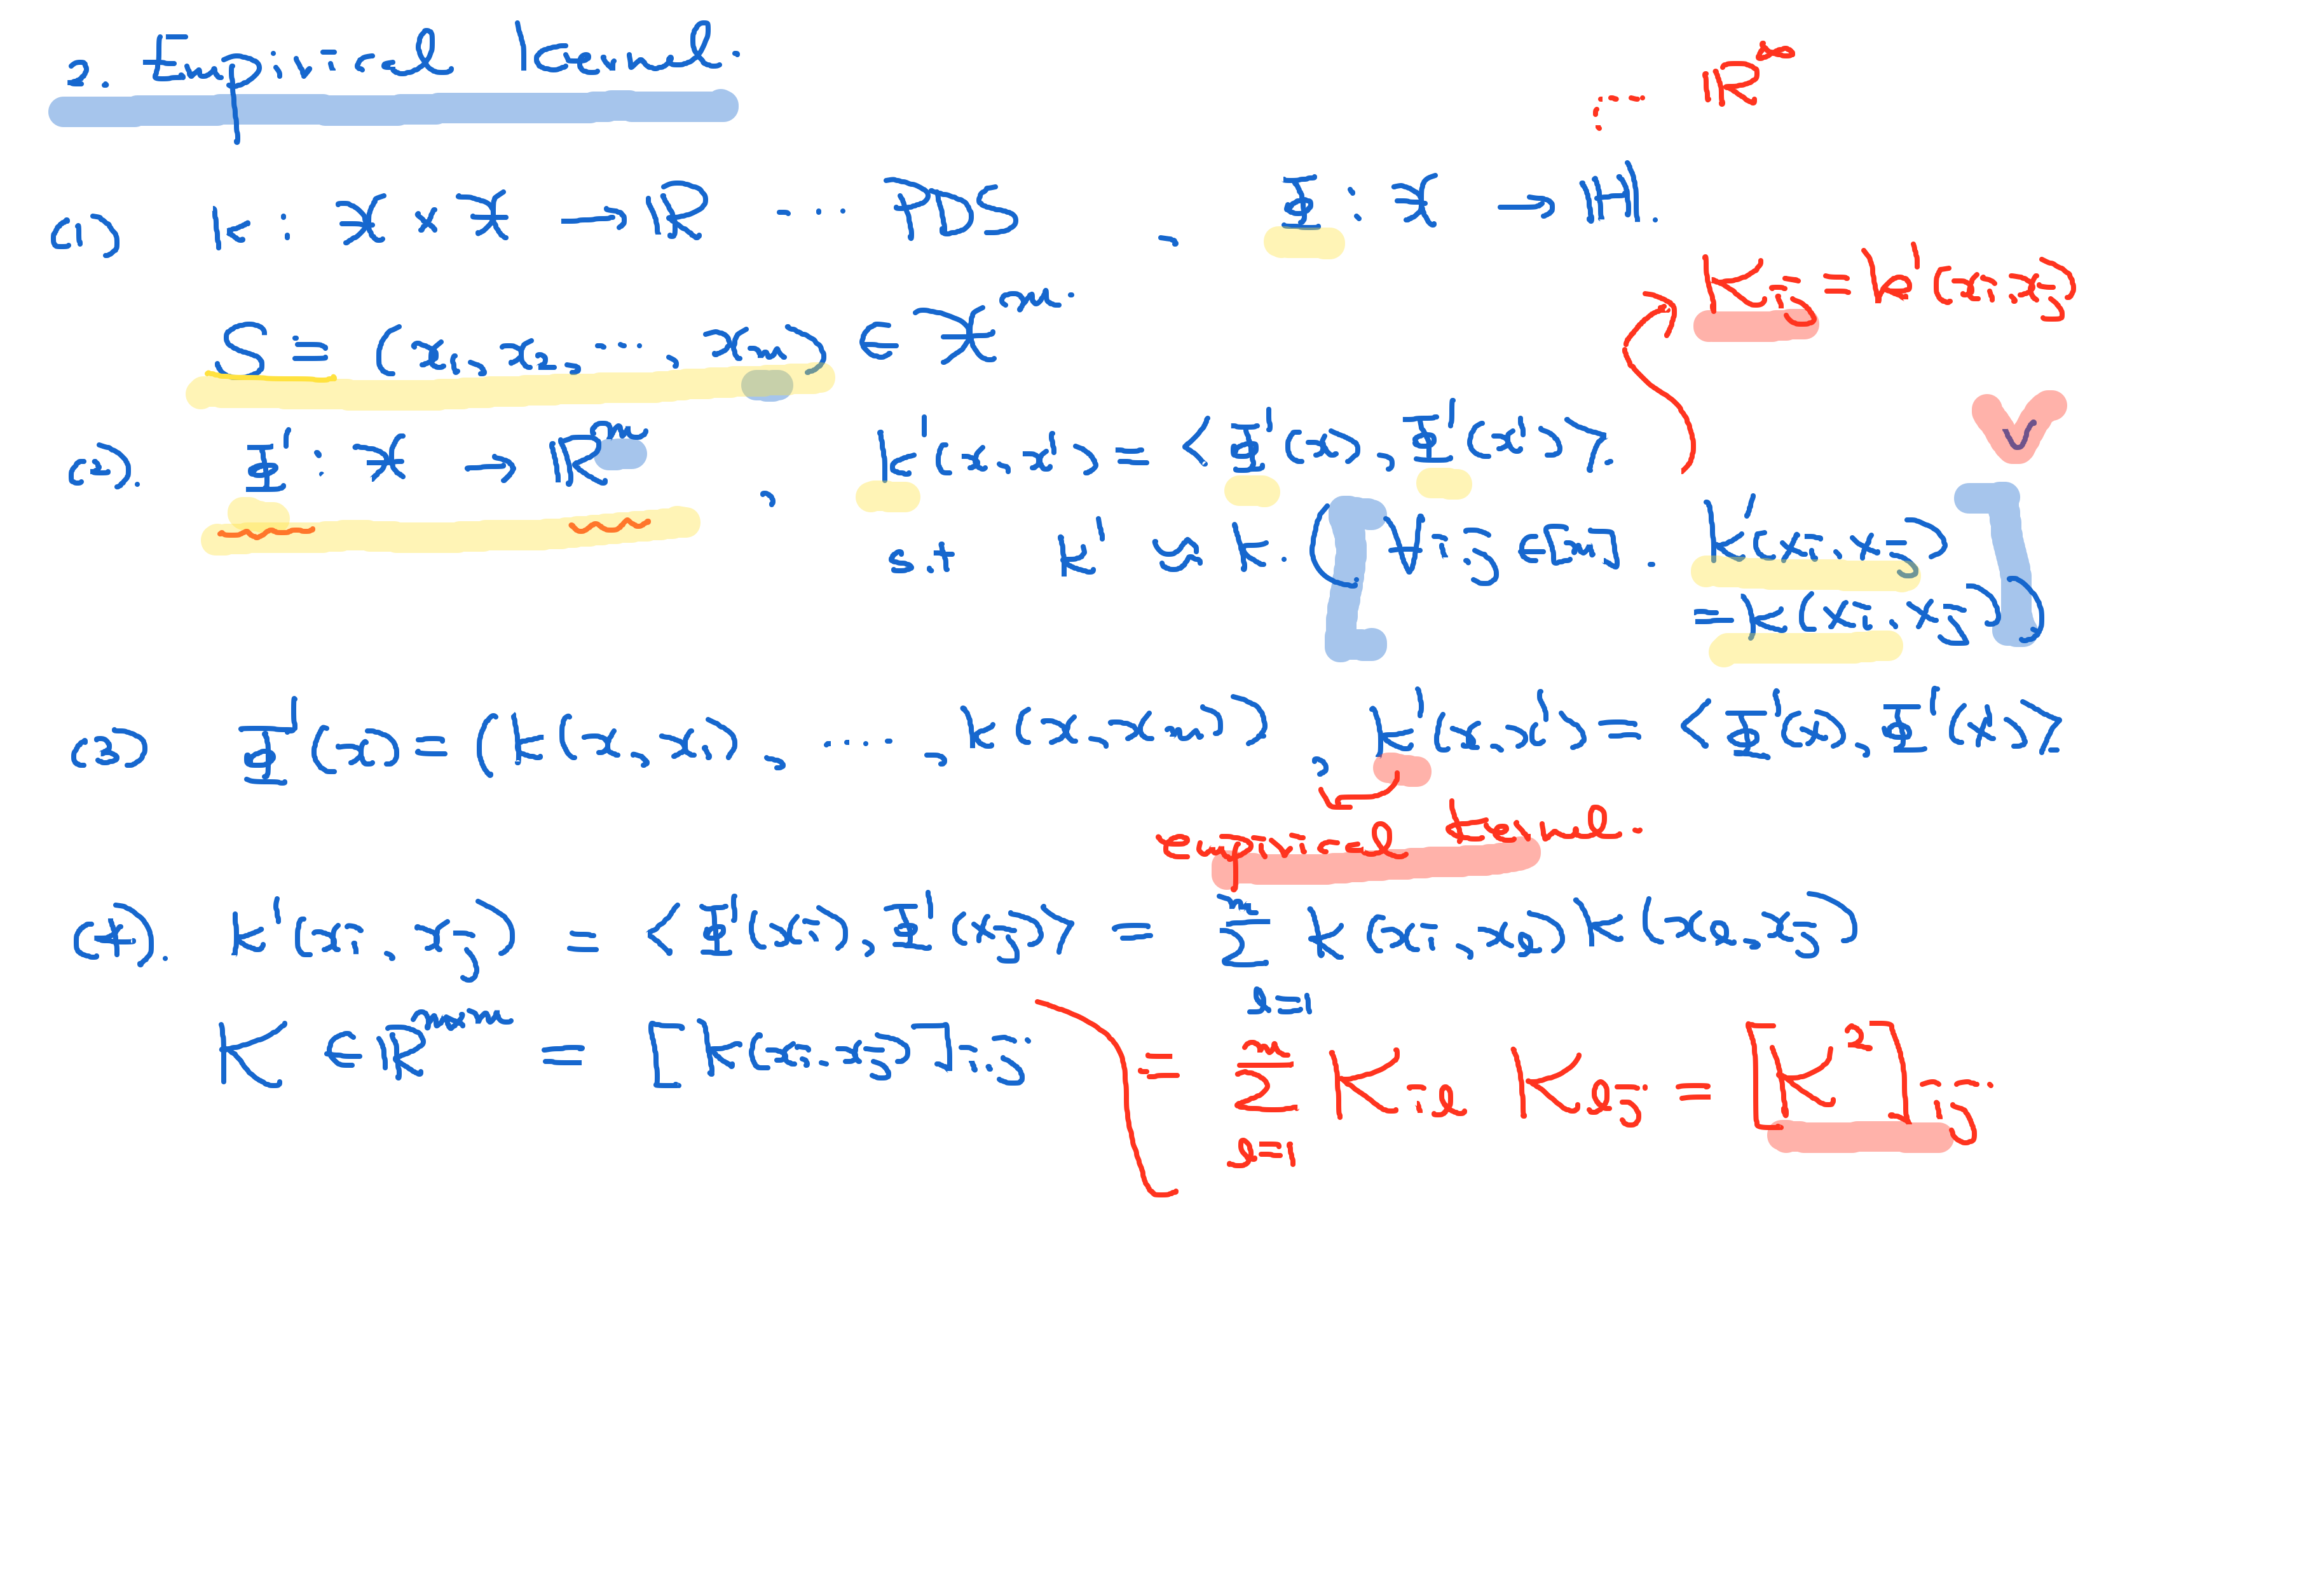 2. Empirical kernel.
R^∞
1) K : X × X → R ... PDS , Φ : X → H.
K'ij = K'(xi, xj)
S = (x1, x2, ..., xm) ∈ X^m.
2). Φ' : X → R^m , K'(x, x') = <Φ'(x), Φ'(x')>.
s.t K' ≈ K. (∀ i,j ∈ [m]. K'(xi, xj)
= K(xi, xj))
3) Φ'(x) = (K(x, x1), ..., K(x, xm)), K'(x, x') = <Φ'(x), Φ'(x')>
empirical kernel.
4). K'(xi, xj) = <Φ'(xi), Φ'(xj)> = Σ_{l=1}^m K(xi, xl) K(xl, xj)
K ∈ R^{m×m} = [K(xi, xj)]i,j = Σ_{l=1}^m Kil Klj = [K²]ij